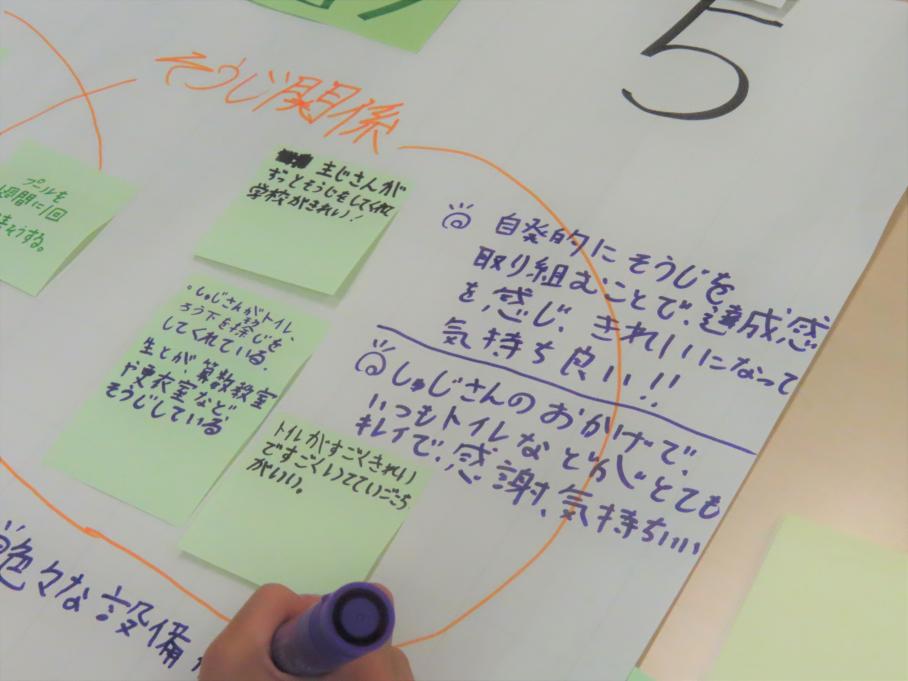 5
そうじ関係
プールを
週間に1回
そうする。
主じさんが
ずっとそうじをしてくれ
学校がきれい!
・しゅじさんがトイレ、
ろう下を掃じを
してくれている。
生とが、算数教室
や更衣室など、
そうじしている
トイレがすごくきれい
ですごくいてていごこち
がいい。
◎ 自発的にそうじを
取り組むことで、達成感
を感じ、きれいになって
気持ち良い!!
◎しゅじさんのおかげで、
いつもトイレなどが とても
キレイで、感謝、気持ちいい
色々な設備